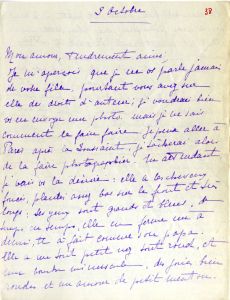 3 Octobre
38
Mon amour, tendrement aimé,
Je m'aperçois que je ne vs parle jamais
de votre fille, pourtant vous avez sur
elle de droits d'auteur ; je voudrais bien
vs en envoyer une photo, mais je ne sais
comment la faire faire. Je peux aller à
Paris après la Toussaint, je tâcherai alors
de la faire photographier. En attendant
je vais vs la décrire : elle a les cheveux
foncés, plantés assez bas sur le front et
longs. Ses yeux sont grands et bleus, de
temps en temps, elle en ferme un à
demi, tt à fait comme son papa.
Elle a un tout petit nez tout rond, et
une bouche minuscule, des joues bien
rondes et un amour de petit menton.